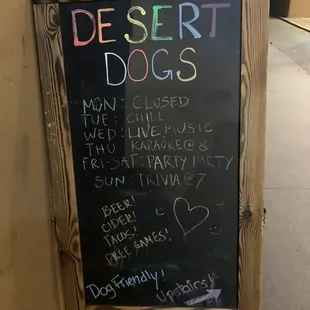 DESERT
DOGS
MON: CLOSED
TUE: CHILL
WED: LIVE MUSIC
THU: KARAOKE@8
FRI-SAT: PARTY PARTY
SUN: TRIVIA@7
BEER!
CIDER!
TACOS!
FREE GAMES!
Dog Friendly!
Upstairs!